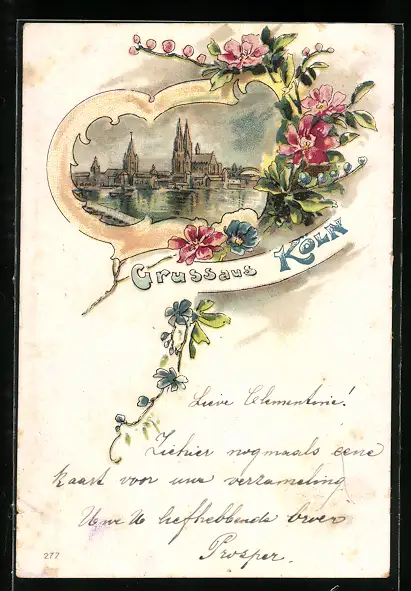 Gruss aus Köln
Lieve Clementine!
Ziehier nogmaals eene
kaart voor uwe verzameling
Uwe U liefhebbende broer
Prosper.
277